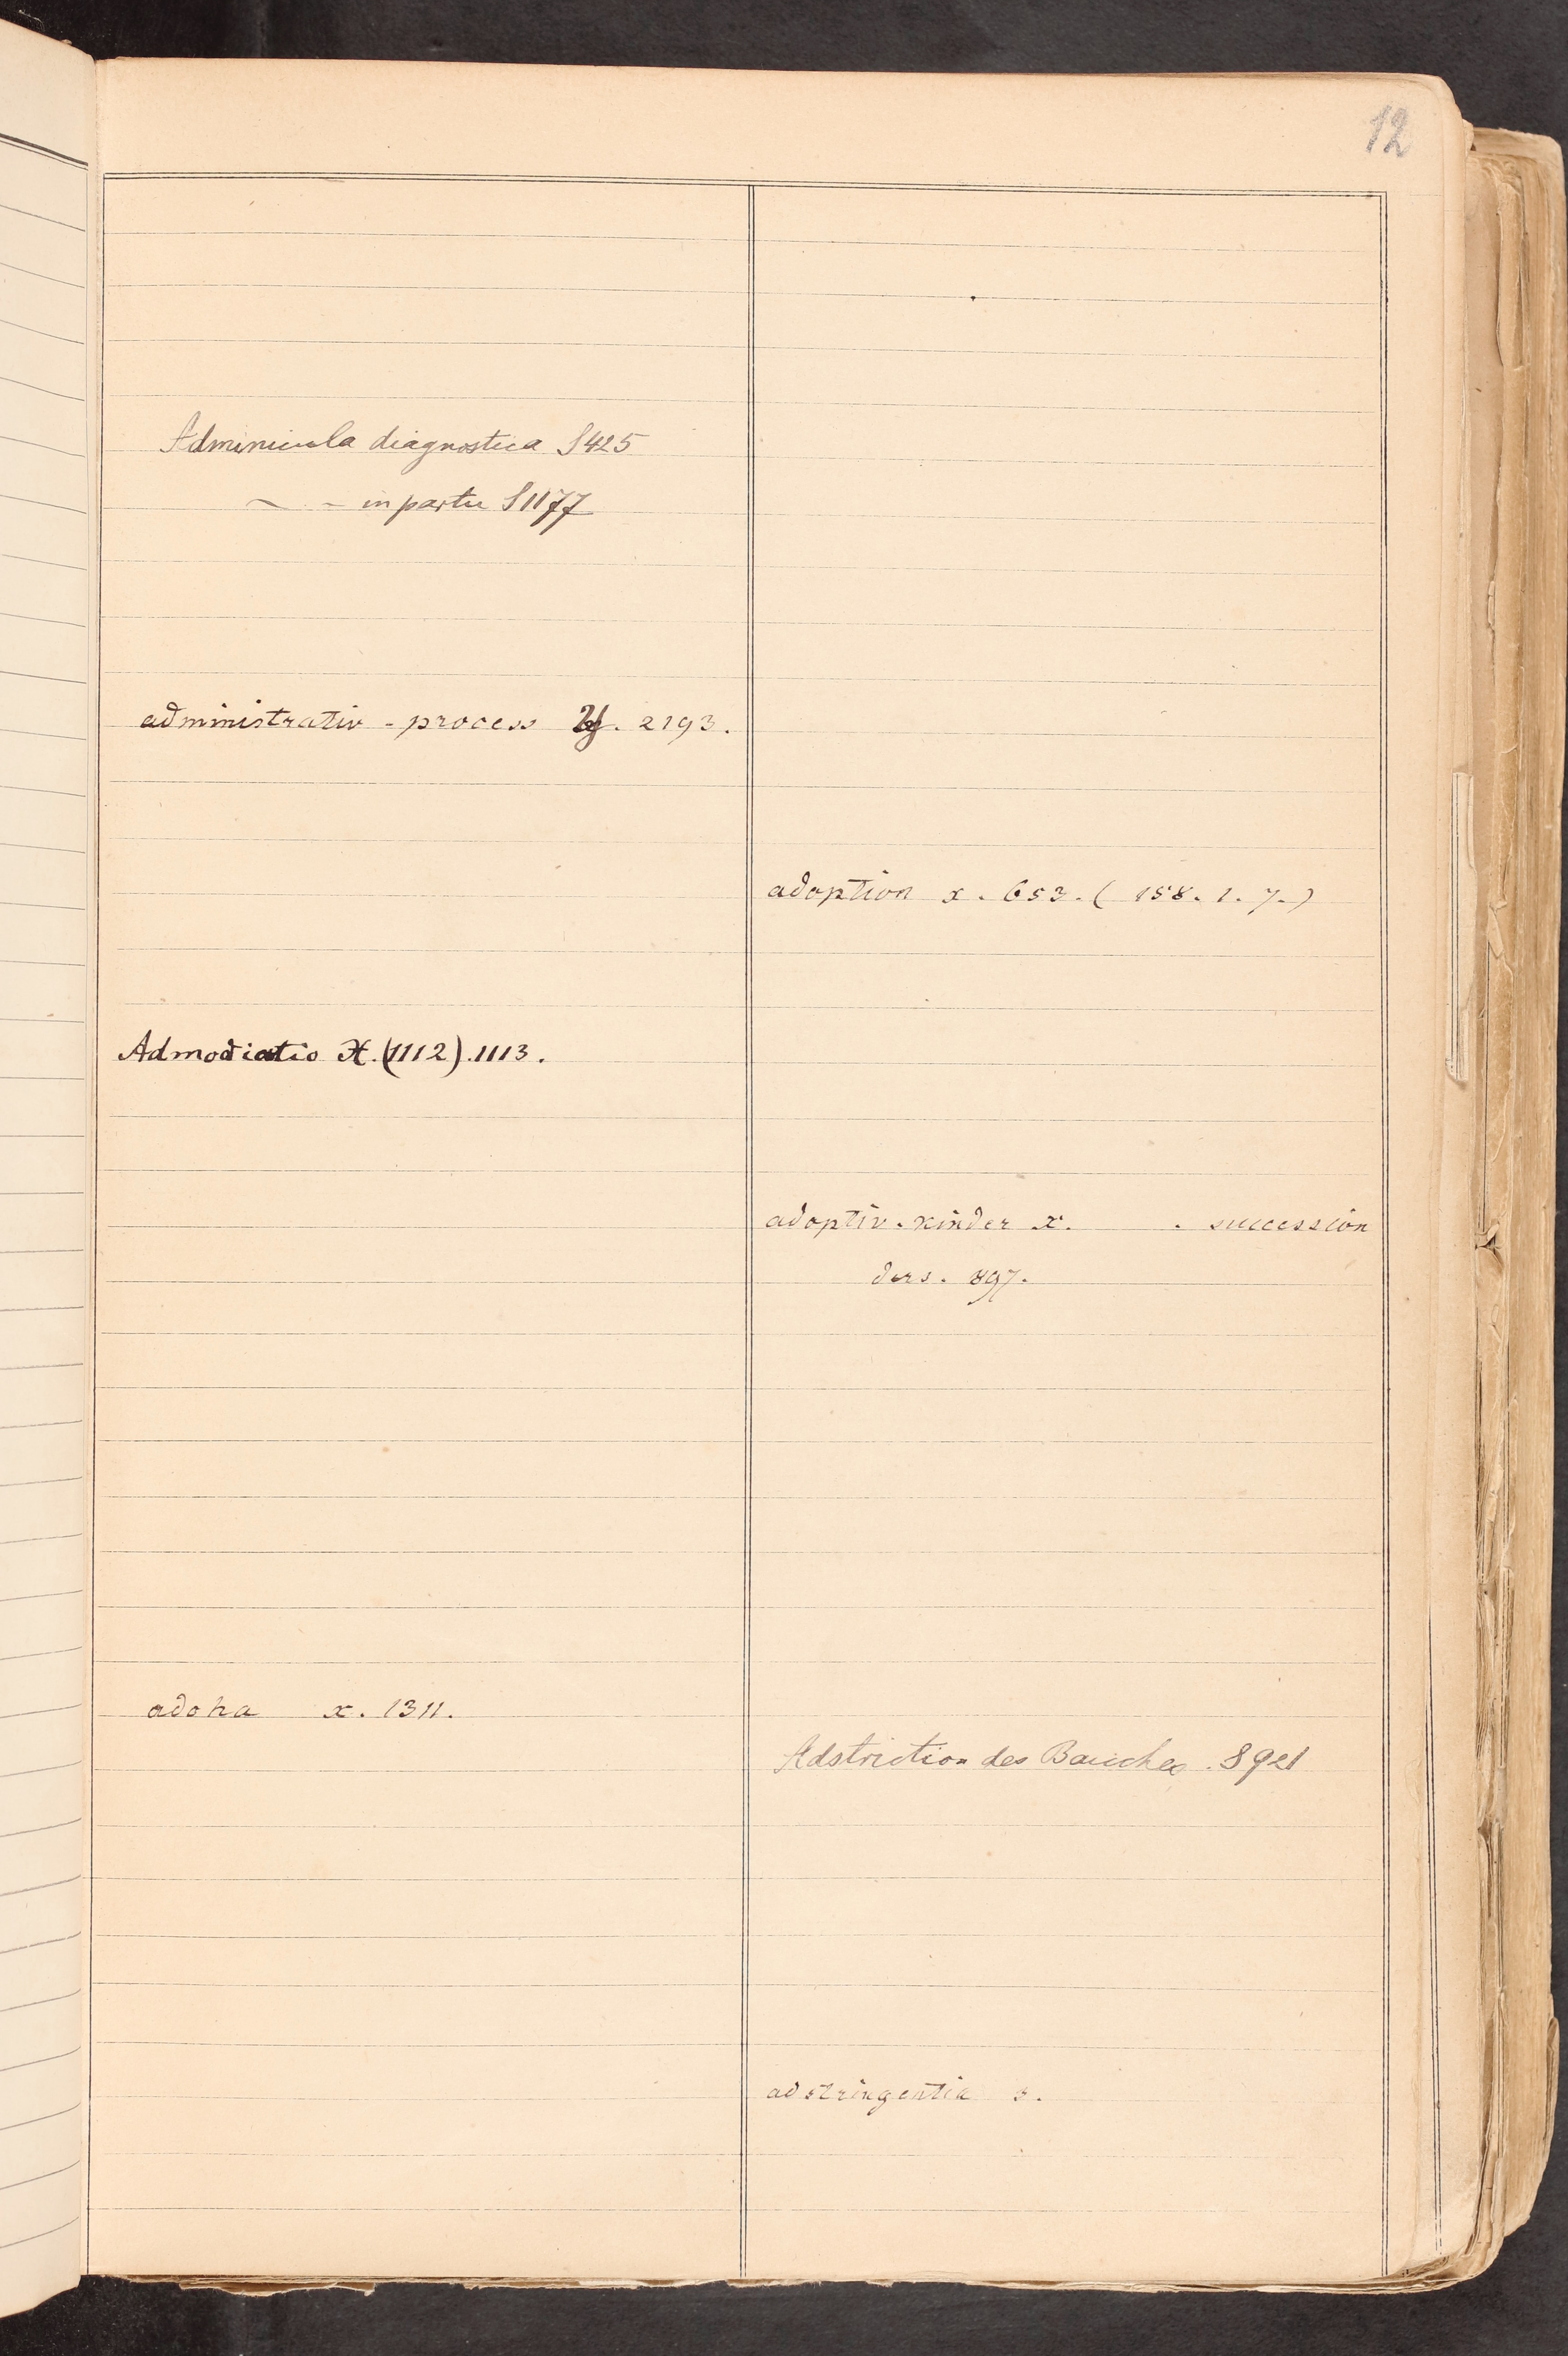 12
Adminicula diagnostica S 425
~ - in partu S 1177
administrativ - process y. 2193.
Admodiatio X. (1112). 1113.
adoha x. 1311.
adoption x. 653. ( 158. 1. 7. )
adoptiv. kinder x. . succession
ders. 897.
Adstriction des Bauches . S 921
adstringentia s.